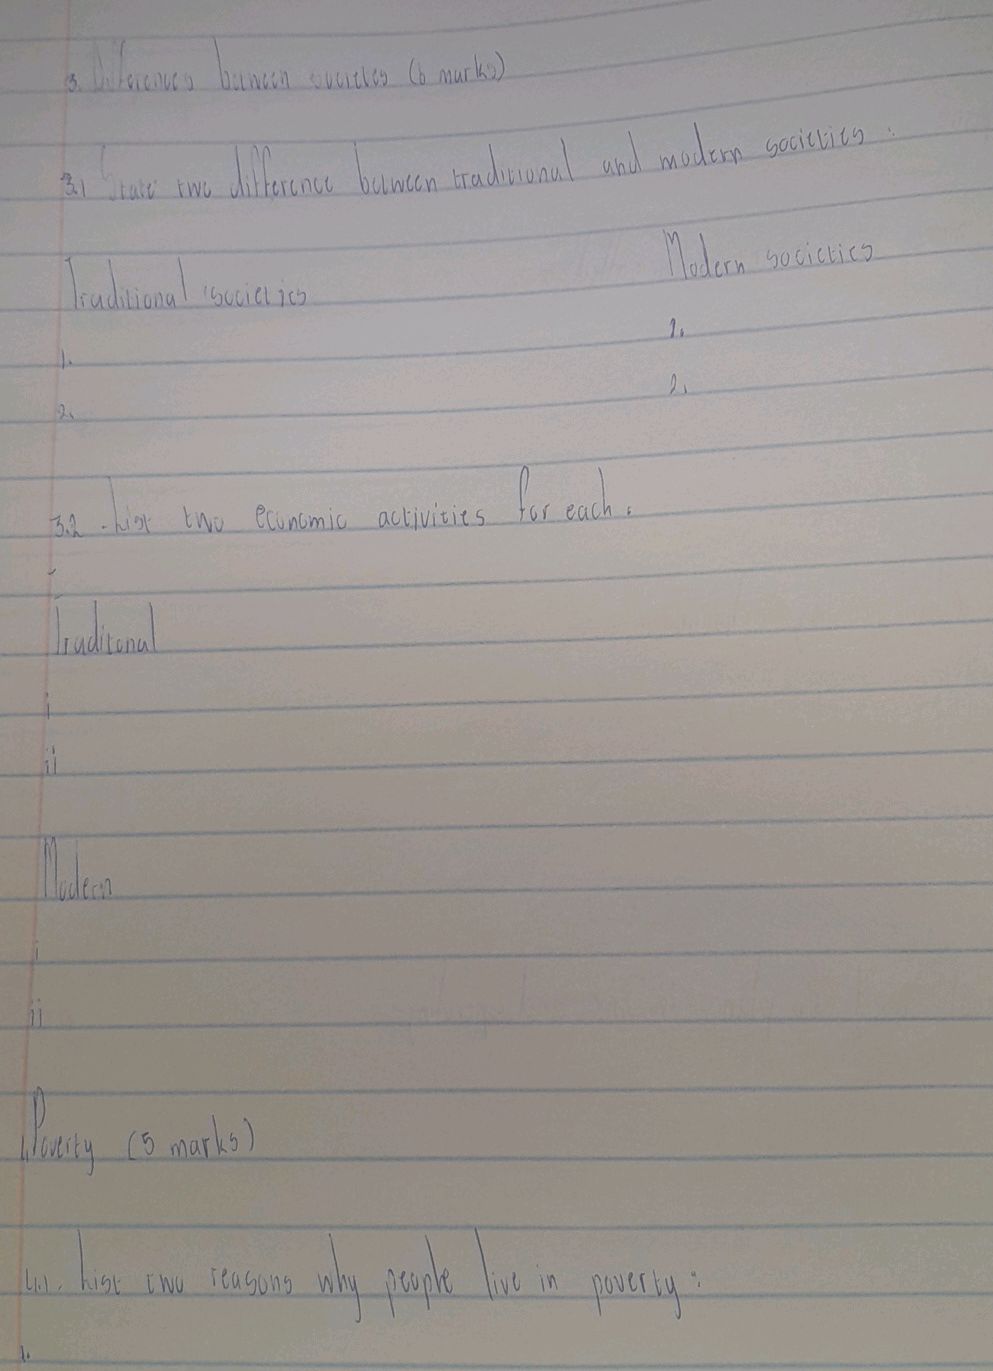 3. Differences between societies (6 marks)
3.1 State two difference between traditional and modern societies :
Traditional societies Modern societies
1. 1.
2. 2.
3.2 - List two economic activities for each :
Traditonal
i
ii
Modern
i
ii
4. Poverty (5 marks)
4.1. List two reasons why people live in poverty :
1.